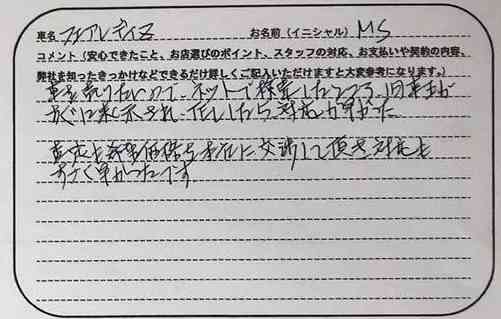 車名 フェアレディZ お名前（イニシャル） MS
コメント（安心できたこと、お店選びのポイント、スタッフの対応、お支払いや契約の内容、
弊社を知ったきっかけなどできるだけ詳しくご記入いただけますと大変参考になります。）
車を売りたいので、ネットで検索したところ、旧車王が
すぐに表示され、依頼したら対応が早かった
査定も希望価格を 交渉して頂き対応も
すごく早かったです